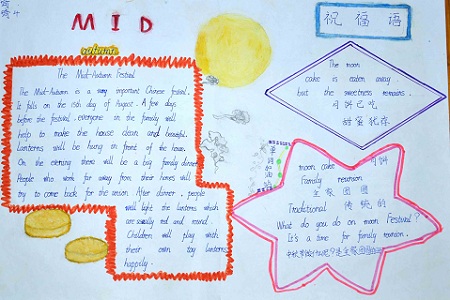 MID
autumn
The Mid-Autumn Festival
The Mid-Autumn is a very important Chinese festival.
It falls on the 15th day of August. A few days
before the festival, everyone in the family will
help to make the house clean and beautiful.
Lanterns will be hung in front of the house.
On the evening there will be a big family dinner.
People who work far away from their homes will
try to come back for the union. After dinner, people
will light the lanterns which
are usually red and round.
Children will play with
their own toy lanterns
happily.
祝福语
The moon
cake is eaten away.
but the sweetness remains.
月饼已吃
甜蜜犹存
单词加油站
moon cake 月饼
Family reunion
全家团圆
Traditional 传统的
What do you do on moon Festival?
It's a time for family reunion.